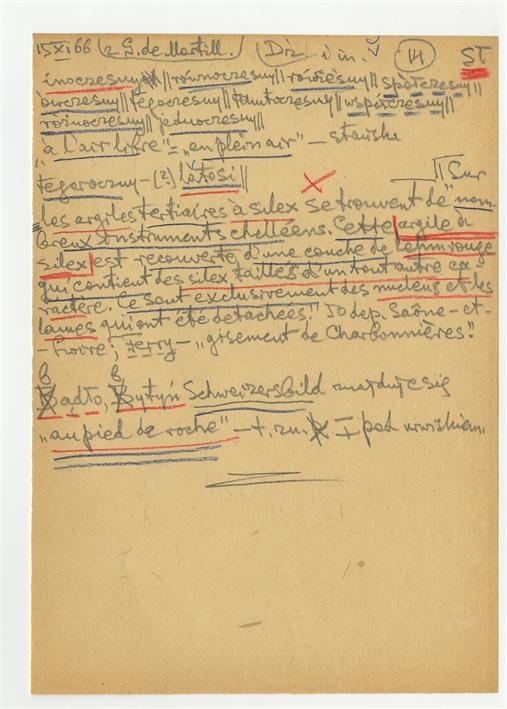 15 XI 66 (z G. de Mortill.) (Diz i in. 14 ST
inoczesny || równoczesny || rówieśny || spółczesny ||
ówczesny || tegoczesny || tamtoczesny || współczesny ||
różnoczesny || jednoczesny ||
"à l'air libre" = "en plein air" —
tegoroczny — (?) latosi || "Sur
les argiles tertiaires à silex se trouvent de nom-
breux instruments chelléens. Cette argile à
silex est recouverte d'une couche de lehm rouge
qui contient des silex taillés d'un tout autre ca-
ractère. Ce sont exclusivement des nucleus et les
lames qui ont été détachées." To dep. Saône-et-
-Loire, Ferry — "gisement de Charbonnières."
b b
Bądło, Bytyń Schweizersbild znajduje się
"au pied de roche" — t. zn. I pod urwiskiem.